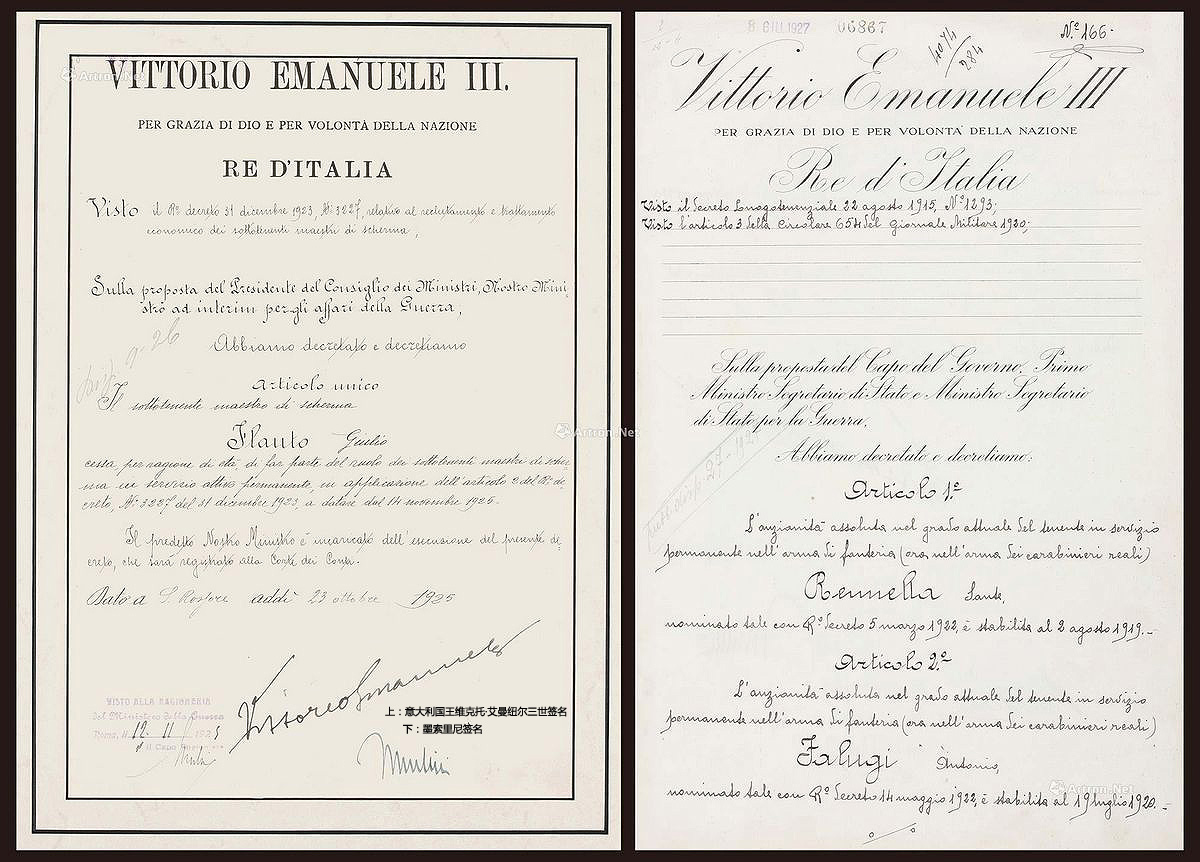 VITTORIO EMANUELE III.
PER GRAZIA DI DIO E PER VOLONTÀ DELLA NAZIONE
RE D'ITALIA
Visto il R° decreto 31 dicembre 1923, N° 3227, relativo al reclutamento e trattamento
economico dei sottotenenti maestri di scherma,
Sulla proposta del Presidente del Consiglio dei Ministri, Nostro Mini-
stro ad interim per gli affari della Guerra,
Abbiamo decretato e decretiamo
Articolo unico
Il sottotenente maestro di scherma
Flauto Giulio
cessa per ragione di età di far parte del ruolo dei sottotenenti maestri di scher-
ma in servizio attivo permanente, in applicazione dell'articolo 2 del R° de-
creto, N° 3227 del 31 dicembre 1923, a datare dal 14 novembre 1925.
Il predetto Nostro Ministro è incaricato dell'esecuzione del presente de-
creto, che sarà registrato alla Corte dei Conti.
Dato a S. Rossore addì 23 ottobre 1925
Vittorio Emanuele
上：意大利国王维克托·艾曼纽尔三世签名
下：墨索里尼签名
Mussolini
VISTO ALLA RAGIONERIA
del Ministero della Guerra
Roma, 12 11 1925
Il Capo
Artron.Net
8 GIU. 1927 06867
N.° 166.
284
Vittorio Emanuele III
PER GRAZIA DI DIO E PER VOLONTA' DELLA NAZIONE
Re d'Italia
Visto il Decreto Luogotenenziale 22 agosto 1915, N° 1293;
Visto l'articolo 3 della Circolare 654 del Giornale Militare 1920;
Sulla proposta del Capo del Governo, Primo
Ministro Segretario di Stato e Ministro Segretario
di Stato per la Guerra;
Abbiamo decretato e decretiamo:
Articolo 1°
L'anzianità assoluta nel grado attuale del tenente in servizio
permanente nell'arma di fanteria (ora nell'arma dei carabinieri reali)
Rennella Sante,
nominato tale con R° Decreto 5 marzo 1922, è stabilita al 2 agosto 1919.
Articolo 2°
L'anzianità assoluta nel grado attuale del tenente in servizio
permanente nell'arma di fanteria (ora nell'arma dei carabinieri reali)
Falugi Antonio,
nominato tale con R° Decreto 14 maggio 1922, è stabilita al 19 luglio 1920.
Artron.Net